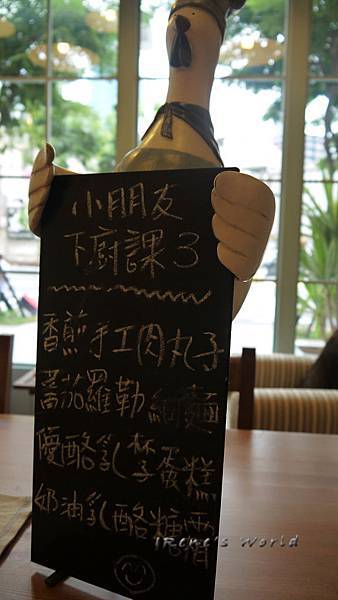 小朋友
下廚課3
香煎手工肉丸子
蕃茄羅勒細麵
優酪乳杯子蛋糕
奶油乳酪糖霜
iRene's World